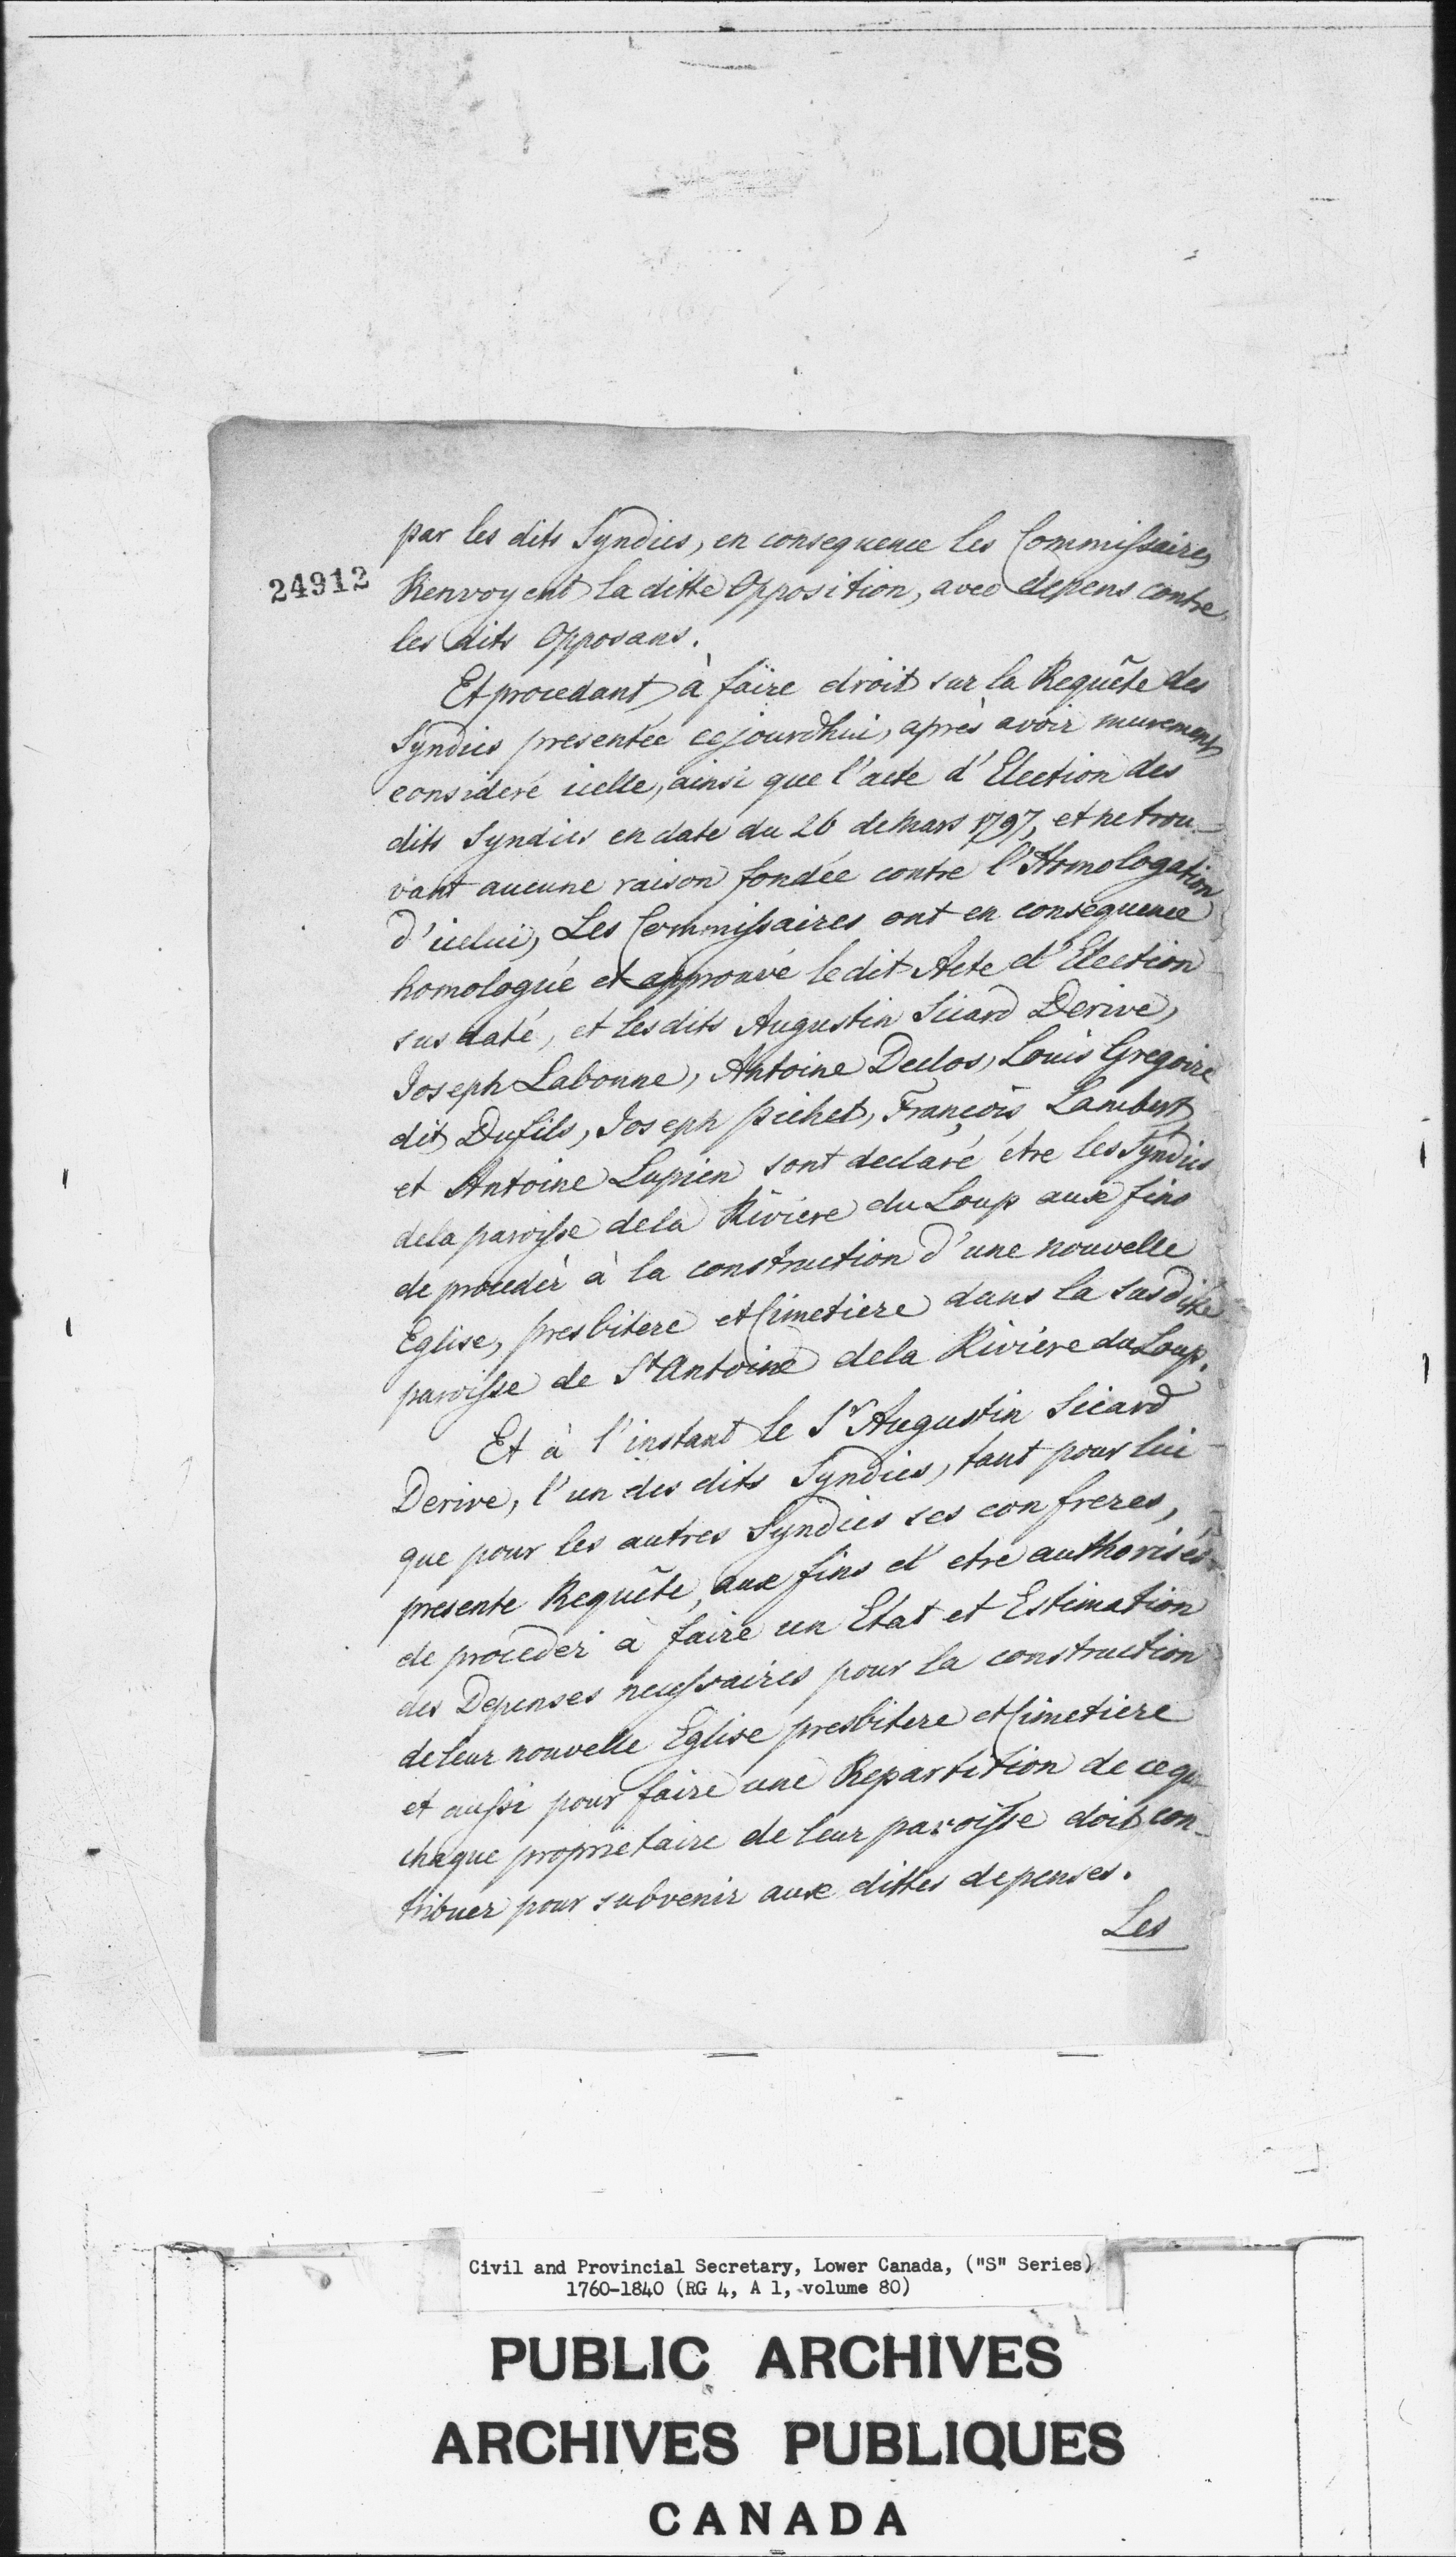 par les dits Syndics, en consequence les Commissaires
24912
Renvoyent la ditte Opposition, avec depens contre
les dits Opposans.
Et procedant à faire droit sur la Requête des
Syndics presentée cejourdhui, après avoir murement
consideré icelle, ainsi que l'acte d'Election des
dits Syndics en date du 26 de Mars 1797, et ne trou-
vant aucune raison fondée contre l'Homologation
d'icelui, Les Commissaires ont en consequence
homologué et approuvé le dit Acte d'Election
sus daté, et les dits Augustin Sicard Derive,
Joseph Labonne, Antoine Declos, Louis Gregoire
dit Dufils, Joseph pichet, François Lambert
et Antoine Lupien sont declaré étre les Syndics
dela paroisse dela Riviere du Loup aux fins
de proceder à la construction d'une nouvelle
Eglise, presbitere et Cimetiere dans la susditte
paroisse de St Antoine dela Riviére du Loup.
Et à l'instant le Sr Augustin Sicard
Derive, l'un des dits Syndics, tant pour lui
que pour les autres Syndics ses confreres,
presente Requête, aux fins d'etre authorisés
de proceder à faire un Etat et Estimation
des Depenses necessaires pour la construction
de leur nouvelle Eglise presbitere et Cimetiere
et aussi pour faire une Repartition de ce que
chaque proprietaire de leur paroisse doit con-
tribuer pour subvenir aux dittes depenses.
Les
Civil and Provincial Secretary, Lower Canada, ("S" Series)
1760-1840 (RG 4, A 1, volume 80)
PUBLIC ARCHIVES
ARCHIVES PUBLIQUES
CANADA